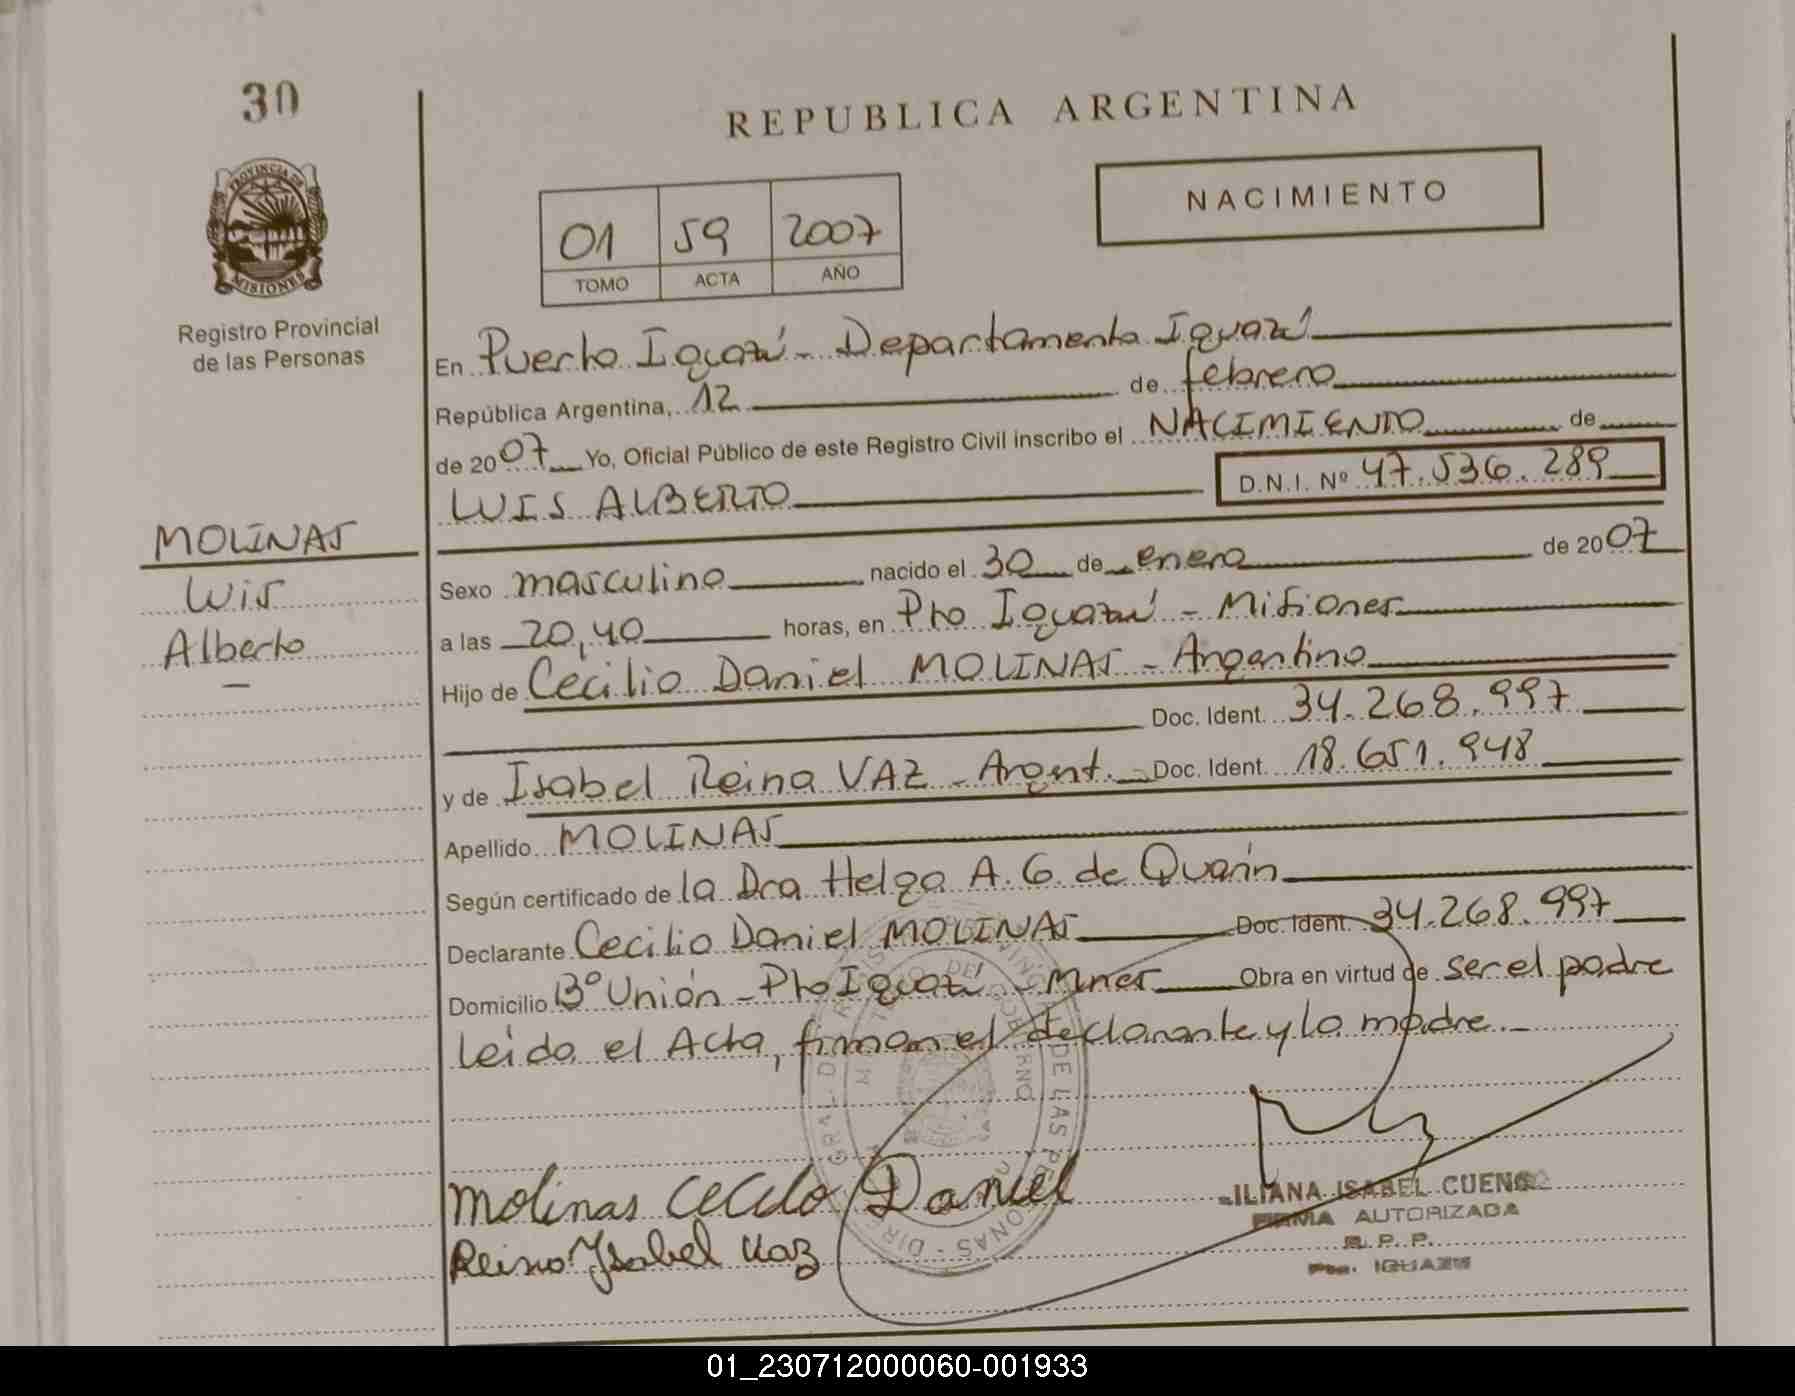 30
REPUBLICA ARGENTINA
NACIMIENTO
01 59 2007
TOMO ACTA AÑO
PROVINCIA DE MISIONES
Registro Provincial
de las Personas
En Puerto Iguazú - Departamento Iguazú
República Argentina, 12 de febrero
de 2007 Yo, Oficial Público de este Registro Civil inscribo el NACIMIENTO de
LUIS ALBERTO D.N.I. Nº 47.536.289
MOLINAS
Luis
Alberto
Sexo masculino nacido el 30 de enero de 2007
a las 20,40 horas, en Pto Iguazú - Misiones
Hijo de Cecilio Daniel MOLINAS - Argentino
Doc. Ident. 34.268.997
y de Isabel Reina VAZ - Argent. - Doc. Ident. 18.651.948
Apellido MOLINAS
Según certificado de la Dra Helga A. G. de Quarin
Declarante Cecilio Daniel MOLINAS Doc. Ident. 34.268.997
Domicilio Bº Unión - Pto Iguazú - Mnes Obra en virtud de ser el padre
leido el Acta, firman el declarante y la madre -
Molinas Cecilo Daniel
Reina Ysabel Vaz
ILIANA ISABEL CUENCA
FIRMA AUTORIZADA
R. P. P.
Pto. IGUAZU
01_230712000060-001933